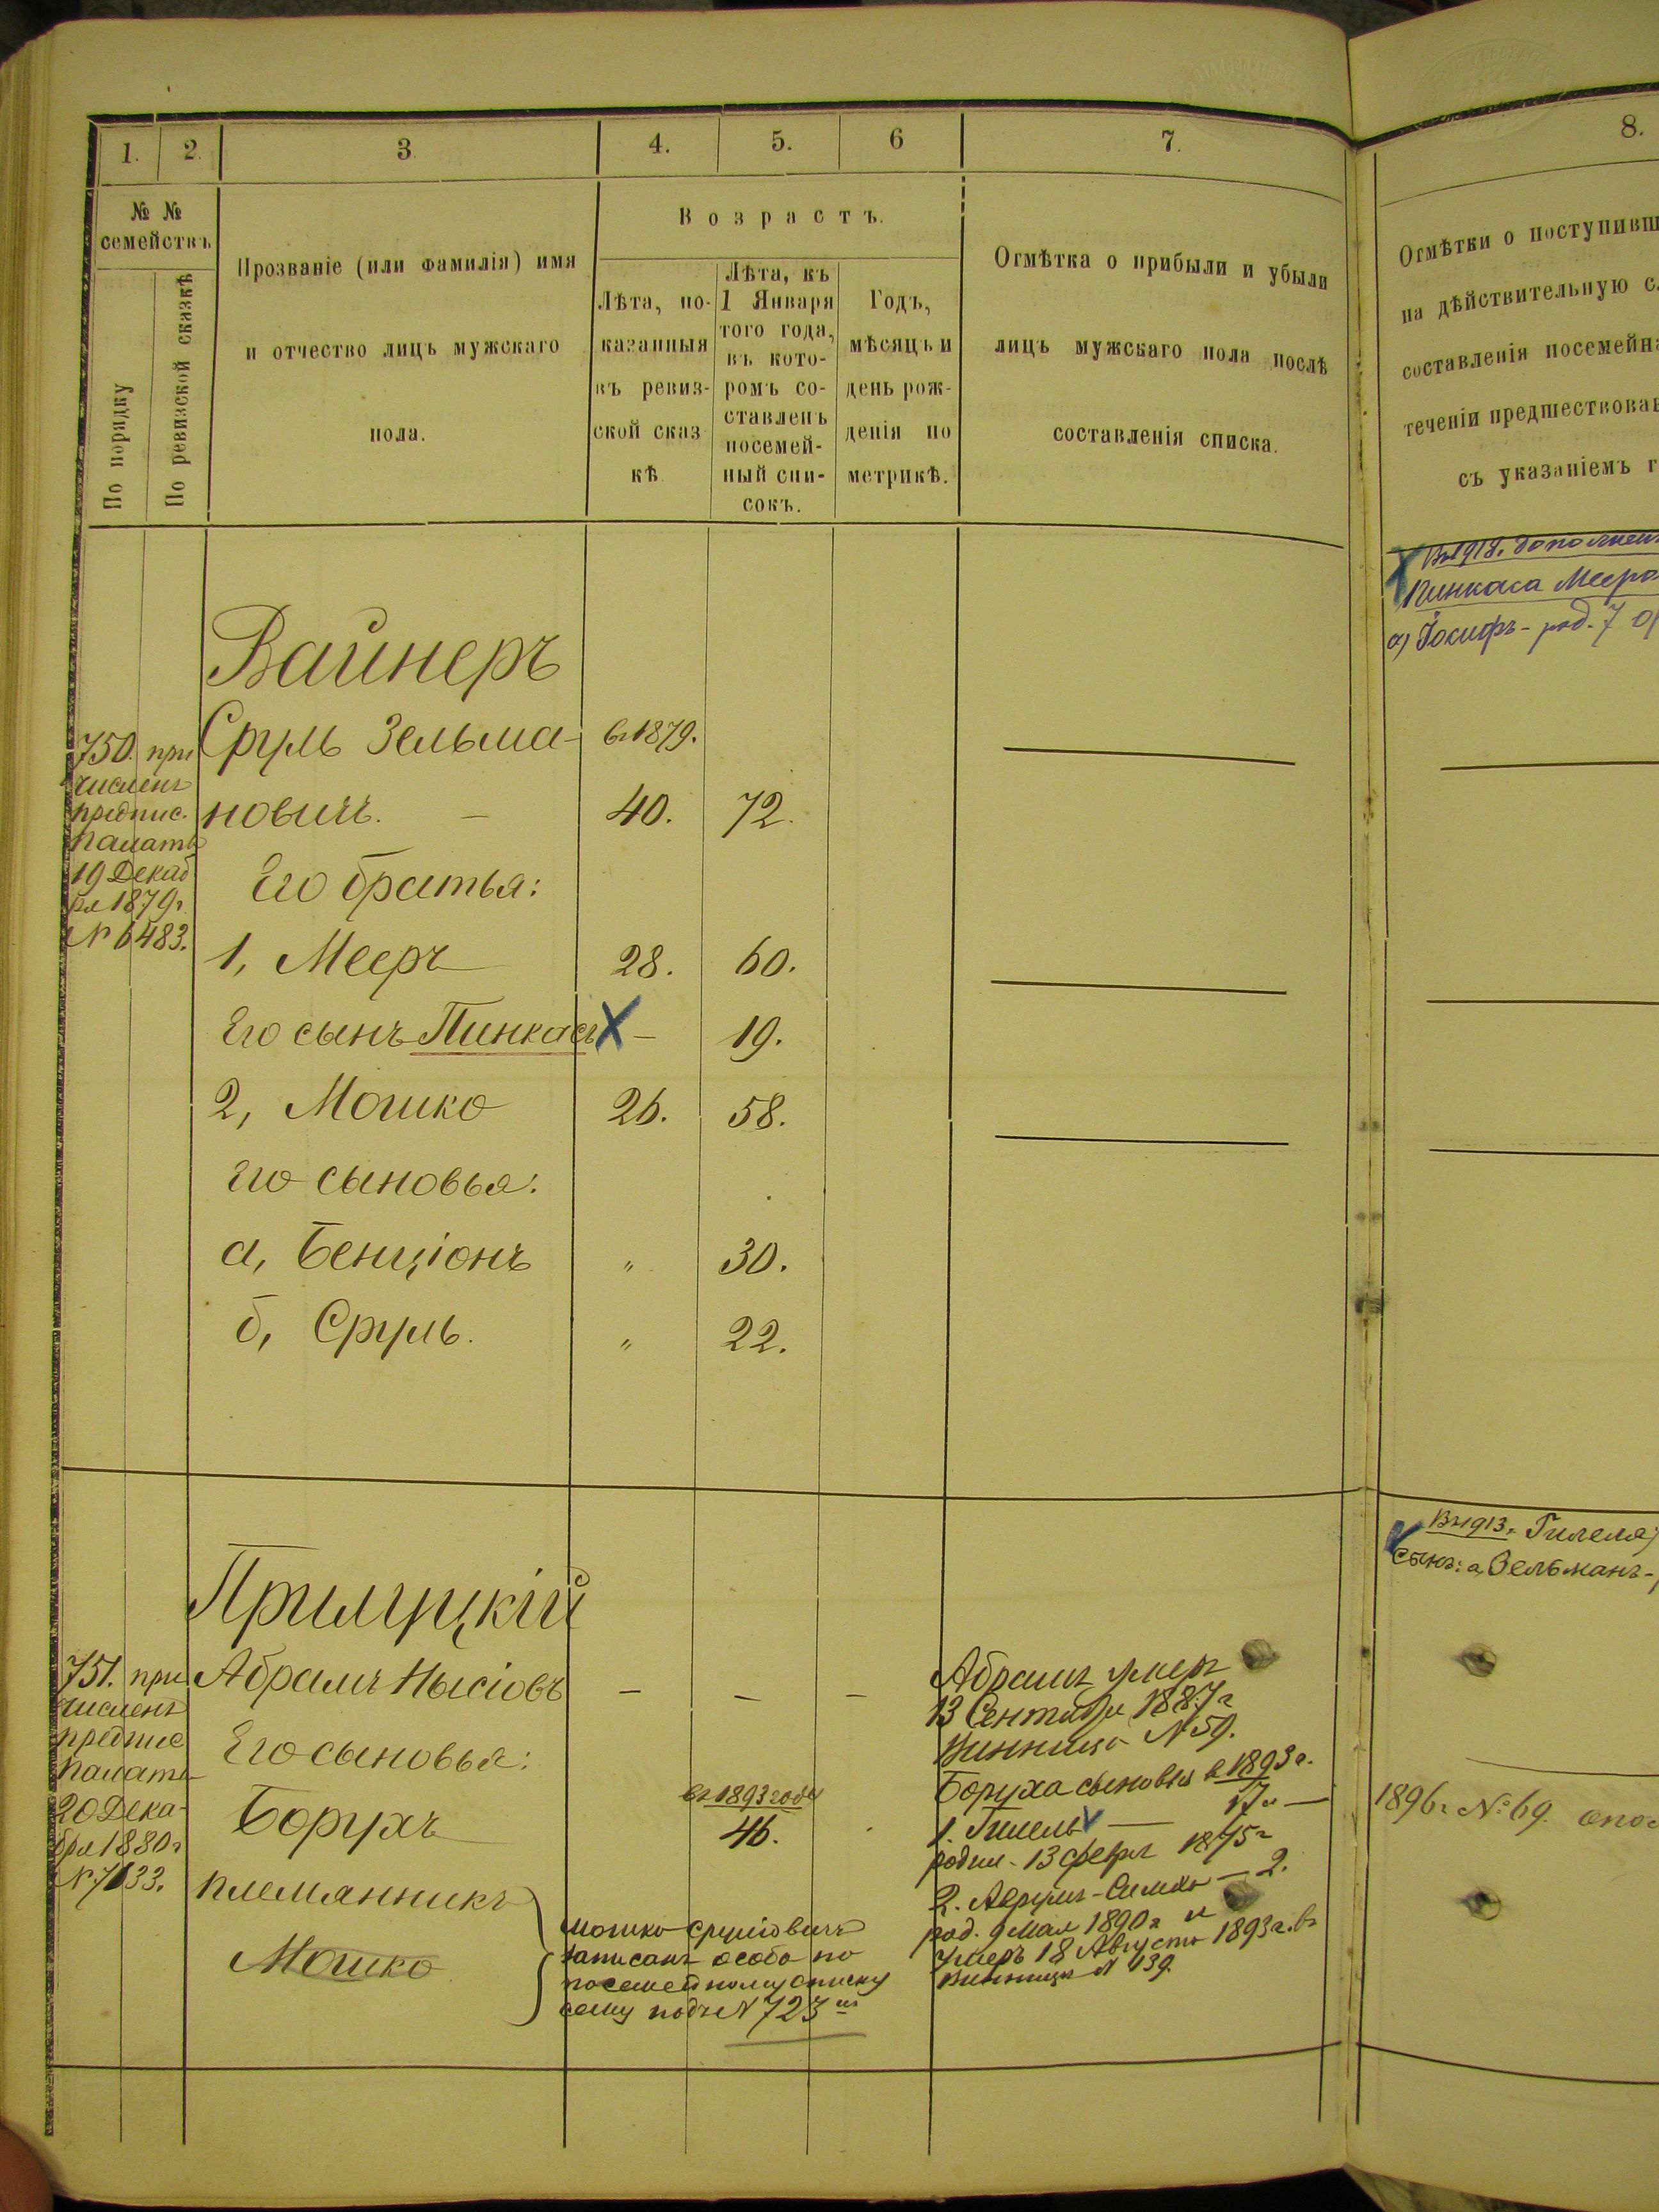 1.
2.
3
4.
5.
6
7.
8.
№ №
семействъ
По порядку
По ревизской сказкѣ
Прозваніе (или фамилія) имя
и отчество лицъ мужскаго
пола.
Возрастъ.
Лѣта, по-
казанныя
въ ревиз-
ской сказ
кѣ.
Лѣта, къ
1 Января
того года,
въ кото-
ромъ со-
ставленъ
посемей-
ный спи-
сокъ.
Годъ,
мѣсяцъ и
день рож-
денія по
метрикѣ.
Отмѣтка о прибыли и убыли
лицъ мужскаго пола послѣ
составленія списка.
Отмѣтки о поступивш
на дѣйствительную с
составленія посемейн
теченіи предшествова
съ указаніемъ г
Въ 1918. дополнен
Пинкаса Меер
а) Іосифъ - род. 7
Вайнеръ
750. при
численъ
предпис.
палаты
19 Декаб
ря 1879 г.
№ 6483.
Сруль Зельма-
новичъ. —
въ 1879.
40. 72.
Его братья:
1, Мееръ 28. 60.
Его сынъ Пинкасъ X — 19.
2, Мошко 26. 58.
Его сыновья:
а, Бенціонъ „ 30.
б, Сруль. „ 22.
Въ 1913 г. Гилеля
сынъ: а, Зельманъ -
Прилуцкій
751. при
численъ
предпис
палаты
20 Дека-
бря 1880 г
№ 7133.
Абрамъ Нысіовъ — — —
Его сыновья:
Борухъ
въ 1893 году
46.
племянникъ
Мошко
Мошко Сруліовичъ
записанъ особо по
посемейному списку
сему подъ № 723 м
Абрамъ умеръ
13 Сентября 1887 г
Винница № 59.
Боруха сыновья в 1893 г.
1. Гилель — 17 —
родил. 13 февр 1875 г
2. Аврумъ-Симха — 2.
род. 9 мая 1890 г и
умеръ 18 Августа 1893 г. въ
Винницѣ № 139.
1896 г № 69.